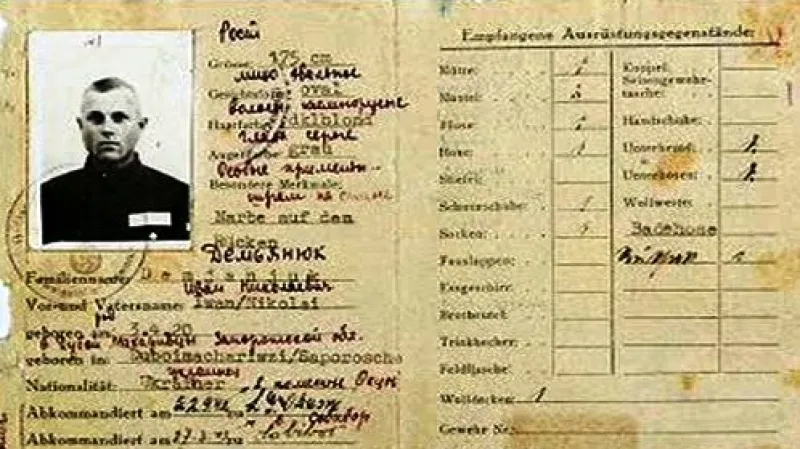 Рост
Grösse: 175 cm
лицо овальное
Gesichtsform: oval
Haarfarbe: dklblond
глаза серые
Augenfarbe: grau
Особые приметы
Besondere Merkmale:
шрам на спине
Narbe auf dem
Rücken
Демьянюк
Familienname: Demjanjuk
Иван Николаевич
Vor-und Vatersname: Iwan/Nikolai
geboren am: 3.4.20
Запорожской обл.
geboren in: Duboimachariwzi/Saporosche
Nationalität: Ukrainer
Abkommandiert am 22.9.42 zu L.G. Okzow
Собибор
Abkommandiert am 27.3.43 zu Sobibor
Empfangene Ausrüstungsgegenstände:
Mütze: 1
Mantel: 1
Bluse: 1
Hose: 1
Stiefel:
Schnürschuhe: 1
Socken: 1
Fusslappen:
Essgeschirr:
Brotbeutel:
Trinkbecher:
Feldflasche:
Wolldecken: 1
Gewehr Nr.
Koppel:
Seitengewehr-
tasche:
Handschuhe:
Unterhemd: 1.
Unterhosen: 1.
Wollweste:
Badehose